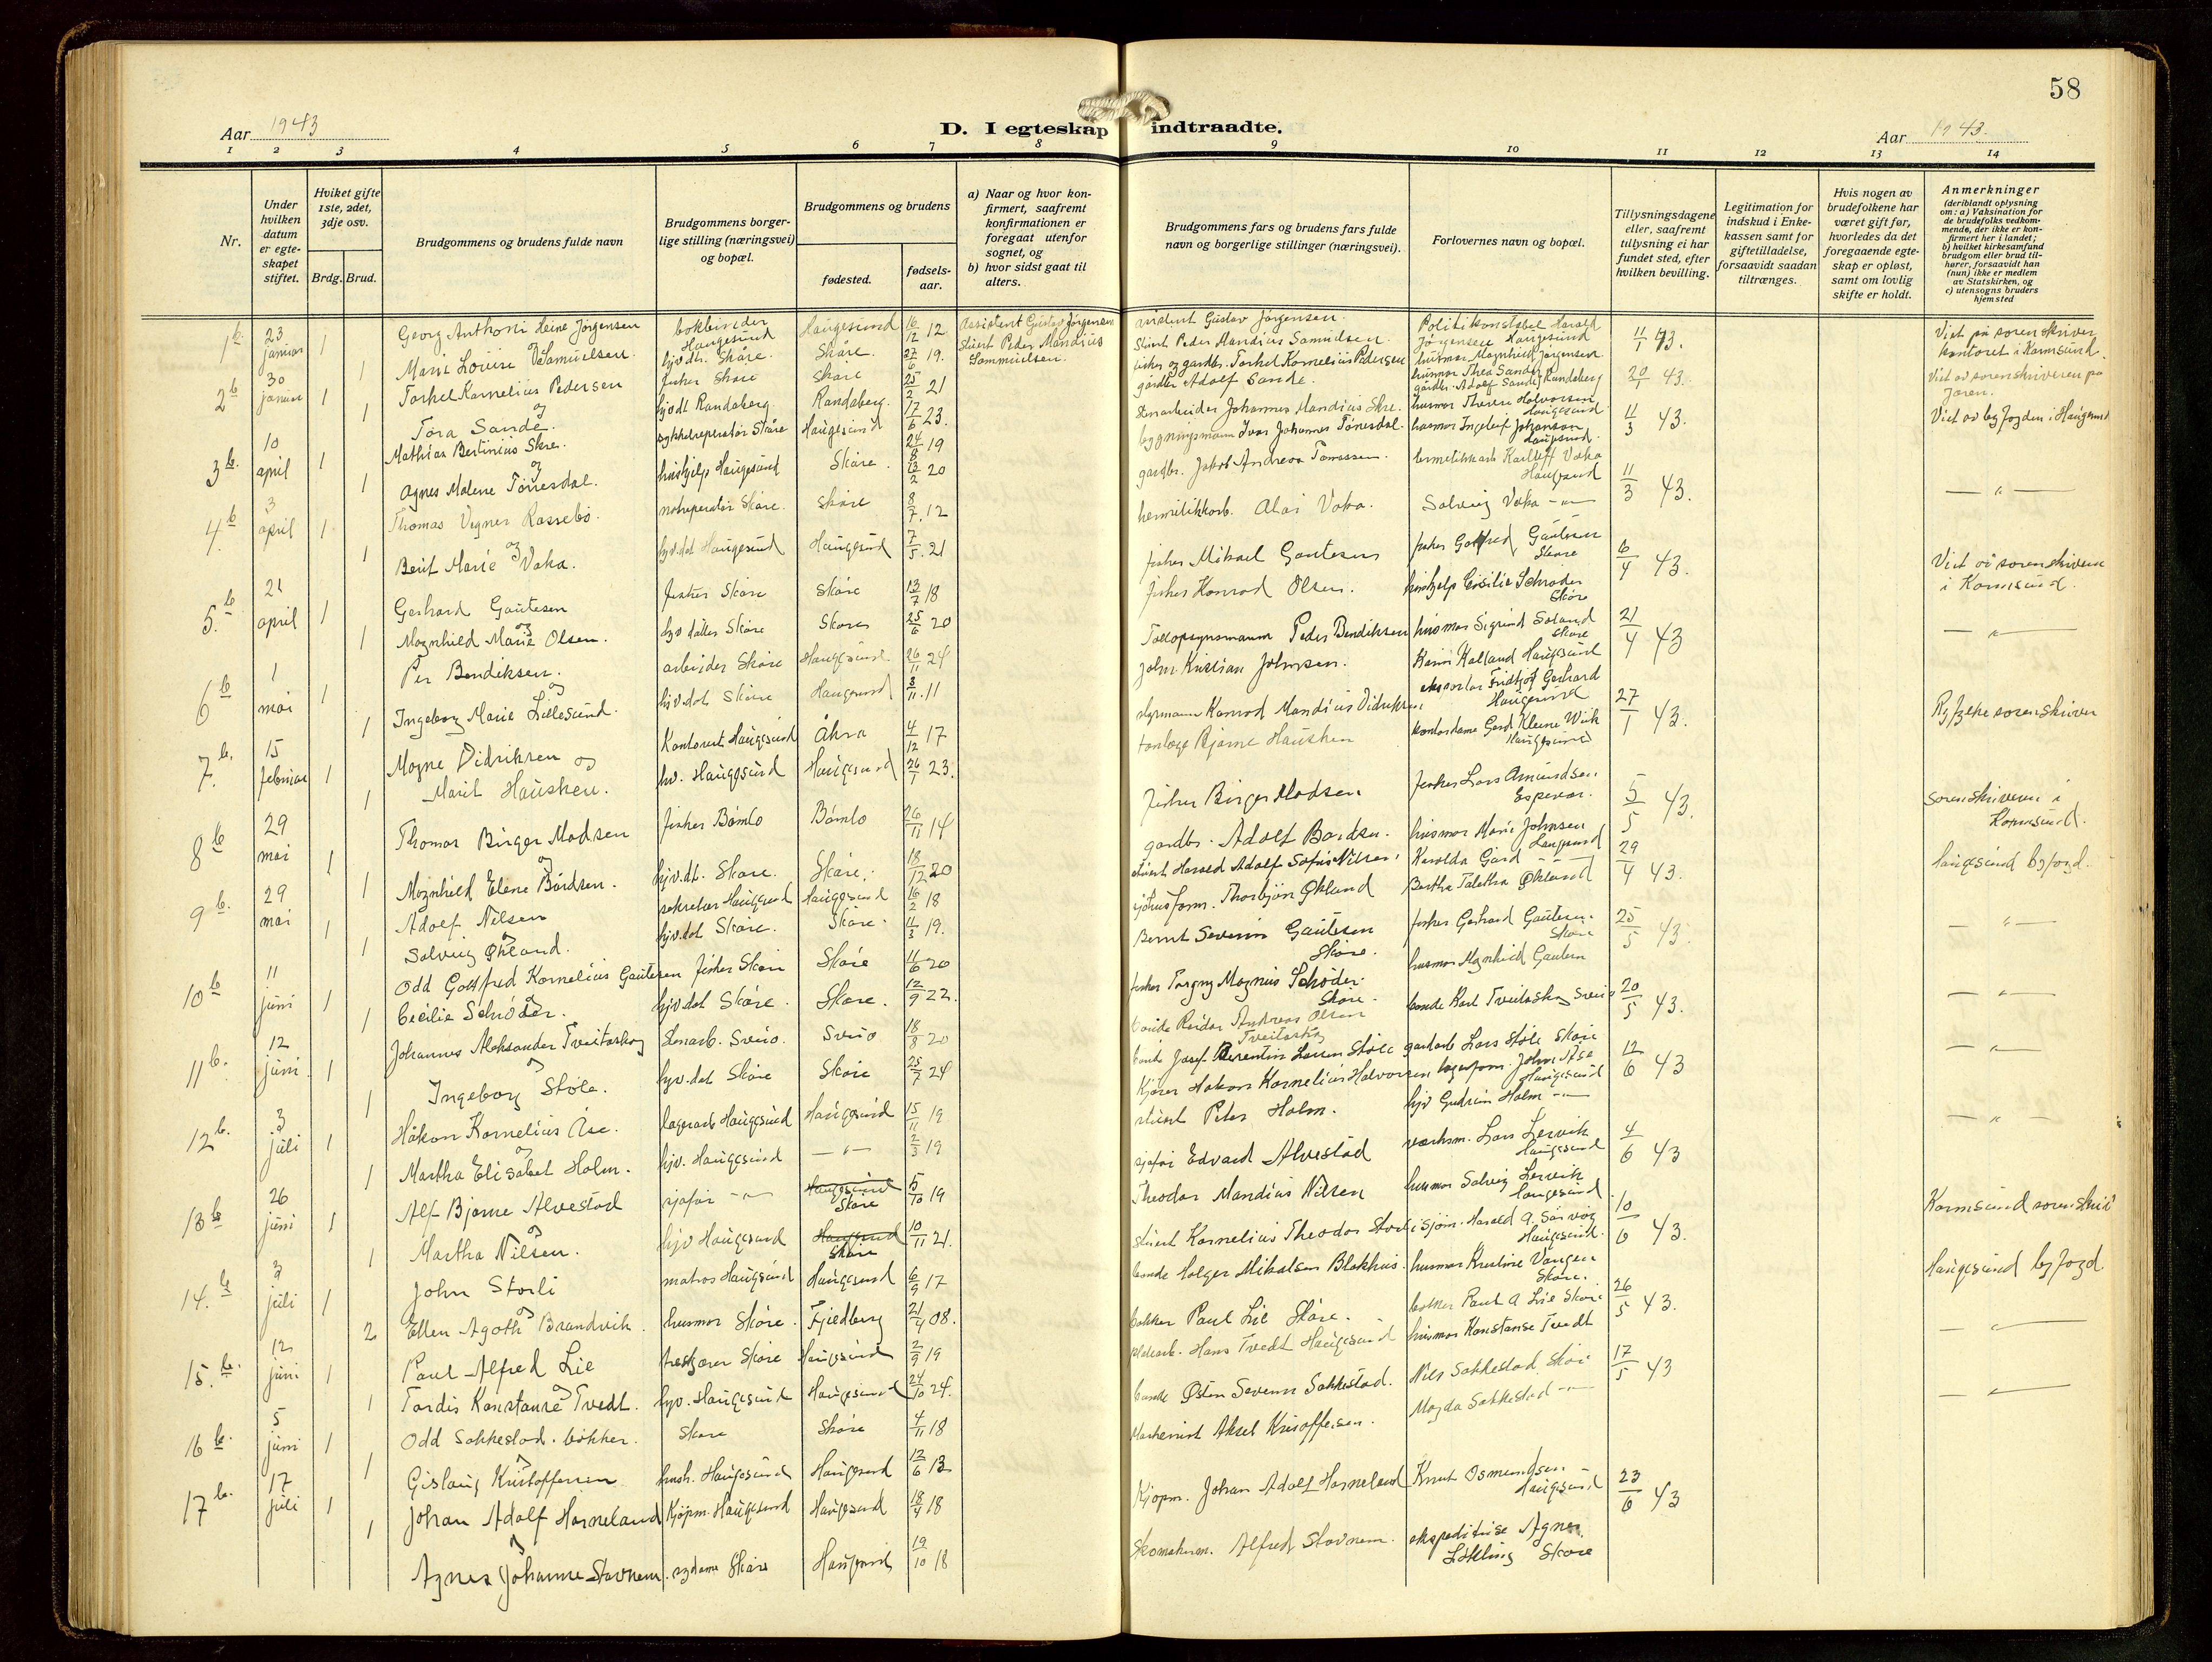 58
Aar 1943
D. I egteskap indtraadte.
Aar 1943.
1 2 3 4 5 6 7 8 9 10 11 12 13 14
Nr.
Under hvilken datum er egteskapet stiftet.
Hviket gifte 1ste, 2det, 3dje osv.
Brdg. Brud.
Brudgommens og brudens fulde navn
Brudgommens borgerlige stilling (næringsvei) og bopæl.
Brudgommens og brudens
fødested.
fødselsaar.
a) Naar og hvor konfirmert, saafremt konfirmationen er foregaat utenfor sognet, og
b) hvor sidst gaat til alters.
Brudgommens fars og brudens fars fulde navn og borgerlige stillinger (næringsvei).
Forlovernes navn og bopæl.
Tillysningsdagene eller, saafremt tillysning ei har fundet sted, efter hvilken bevilling.
Legitimation for indskud i Enkekassen samt for giftetilladelse, forsaavidt saadan tiltrænges.
Hvis nogen av brudefolkene har været gift før, hvorledes da det foregaaende egteskap er opløst, samt om lovlig skifte er holdt.
Anmerkninger (deriblandt oplysning om: a) Vaksination for de brudefolks vedkommende, der ikke er konfirmert her i landet; b) hvilket kirkesamfund brudgom eller brud tilhører, forsaavidt han (hun) ikke er medlem av Statskirken, og c) utensogns bruders hjemsted
1 b. 23 januar 1 Georg Anthoni Heine Jørgensen bokbinder Haugesund Haugesund 16/12 12 Assistent Gustav Jørgensen assistent Gustav Jørgensen. Politikonstabel Harald Jørgensen Haugesund 11/1 43. Viet på sorenskriver kontoret i Karmsund.
og 1 Marie Lovise Samuelsen hjv.dt. Skåre. Skåre. 27/6 19. Stuert Peder Mandius Sammuelsen. Stuert Peder Mandius Samuelsen. husmor Magnhild Jørgensen
2 b 30 januar 1 Torkel Kornelius Pedersen fisker Skåre Skåre 25/2 21 fisker og gardbr. Torkel Kornelius Pedersen husmor Thea Sande 20/1 43. Viet av sorenskriveren på Jæren.
og 1 Tora Sande. hjv dt Randaberg Randaberg. 17/6 23. gardbr Adolf Sande. gårdbr. Adolf Sande Randaberg
3 b. 10 april 1 Mathias Bertinius Skre. sykkelreperatør Skåre Haugesund 24/8 19 Stenarbeider Johannes Mandius Skre. husmor Therese Halvorsen Haugesund 11/3 43. Viet av byfogden i Haugesund
og 1 Agnes Malene Tønnesdal. hushjelp Haugesund Skåre. 13/2 20 bygningsmann Ivar Johannes Tønesdal. husmor Ingeleif Johanson Haugesund.
4 b 3 april 1 Thomas Vegner Rossebø. notreperatør Skåre. Skåre 8/7 12 gardbr. Jakob Andreas Hermetikkarb Karlleif Vaka Haugesund 11/3 43. — " —
og 1 Berit Marie Vaka. hjv.dat Haugesund Haugesund 7/5 21 hermetikkarb. Vaka. Solveig Vaka — " —
5. b 21 april 1 Gerhard Gautesen fisker Skåre Skåre 13/7 18 fisker Mikael Gautesen fisker Gotfred Gautesen Skåre 6/4 43. Viet av sorenskriveren i Karmsund.
og 1 Magnhild Marie Olsen. hjv datter Skåre Skåre 25/6 20 fisker Konrad Olsen. hushjelp Cecilie Schrøder Skåre
6 b 1 mai 1 Per Bendiksen. arbeider Skåre Haugesund. 26/11 24 Tollopsynsmann Peder Bendiksen husmor Sigrund Solund Skåre 21/4 43 — " —
og 1 Ingeborg Marie Lillesund. hjv.dat Skåre Haugesund 3/11 11 John Kristian Johnsen. Karin Kalland Haugesund
7. b. 15 februar 1 Magne Didriksen og Kontorist Haugesund Åkra 4/12 17 styrmann Konrad Mandius Didriksen Fridtjof Gerhard Haugesund 27/1 43. Ryfylke sorenskriver
1 Marit Hausken. hv. Haugesund Haugesund 26/1 23. tanlæge Bjarne Hausken kontordame Gerd Wiik Haugesund
8 b 29 mai 1 Thomas Birger Madsen fisker Bømlo Bømlo 26/11 14 fisker Birger Madsen fisker Lars Amundsen Espevær. 5/5 43. Sorenskriveren i Karmsund.
og 1 Magnhild Elene Bårdsen. hjv.dt. Skåre. Skåre. 18/12 20 gardbr. Adolf Bårdsen. husmor Marie Johnsen Haugesund
9 b. 29 mai 1 Adolf Nilsen sekretær Haugesund Haugesund 16/2 18 stuert Harald Adolf Sofus Nilsen. Haugesund 29/4 43. Haugesund byfogd.
og 1 Solveig Økland. hjv.dat Skåre. Skåre. 11/3 19. Thorbjørn Økland Bertha Taletha Økland
10 b 11 juni 1 Odd Gottfred Kornelius Gautesen fisker Skåre Skåre 11/6 20 Bernt Severin Gautesen Skåre. fisker Gerhard Gautesen. Skåre 25/5 43. — " —
og 1 Cecilie Schrøder. hjv.dat Skåre. Skåre. 12/9 22. fisker Torgny Magnus Schøder Skåre. husmor Magnhild Gautesen
11 b. 12 juni 1 Johannes Aleksander Tveitaskog Stenarb. Sveio. Sveio 18/8 20 bonde Reidar Andreas Olsen Tveitaskog bonde Karl Tveitaskog Sveio 20/5 43. — " —
og 1 Ingeborg Støle. hjv.dat Skåre Skåre 25/7 24 bonde Josef Berentin Larsen Støle gardarb Lars Støle Skåre
12 b. 3 juli 1 Håkon Kornelius Åse. lagerarb Haugesund Haugesund 15/11 19 Kjører Håkon Kornelius Halvorsen lagerform. John Åse Haugesund 12/6 43 — " —
og 1 Martha Elisabet Holm. hjv. Haugesund — " — 2/3 19 stuert Peter Holm. hjv Gudrun Holm — " —
13 b 26 juni 1 Alf Bjarne Alvestad sjåfør — " — Haugesund Skåre 5/10 19 sjåfør Edvard Alvestad verksm. Lars Lervik Haugesund 4/6 43 Karmsund sorenskriv
og 1 Martha Nilsen. hjv Haugesund Haugesund Skåre 10/11 21. Theodor Mandius Nilsen husmor Solveig Lervik Haugesund.
14. b 3 juli 1 John Storli matros Haugesund Haugesund 6/9 17 stuert Kornelius Theodor Storli sjøm. Harald A. Sørvåg Haugesund. 10/6 43. Haugesund byfogd.
og 2 Ellen Agoth Brandvik. husmor Skåre. Fjeldberg 21/4 08. bonde Holger Mikalsen Blokhus. husmor Kristine Vangen Skåre.
15. b. 12 juni 1 Paul Alfred Lie Skåre Haugesund 2/9 19 bøkker Paul Lie Skåre. bøkker Paul A Lie Skåre 26/5 43. — " —
og 1 Tordis Konstanse Tvedt. hjv. Haugesund Haugesund 24/10 24. Hans Tvedt Haugesund husmor Konstanse Tvedt
16 b. 5 juni 1 Odd Sakkestad. bøkker. Skåre Skåre 4/11 18 bonde Østen Severin Sakkestad. Nils Sakkestad Skåre 17/5 43 — " —
og 1 Gislaug Kristoffersen hush. Haugesund Haugesund 12/6 13 Maskinist Aksel Kristoffersen. Magda Sakkestad — " —
17 b. 17 juli 1 Johan Adolf Horneland Kjøpm. Haugesund Haugesund 18/4 18 Kjøpm. Johan Adolf Horneland Knut Osmundsen. Haugesund 23/6 43
og 1 Agnes Johanne Stavnem. sydame Skåre Haugesund 19/10 18 Skomakerm. Alfred Stavnem. ekspeditrise Agnes Skåre